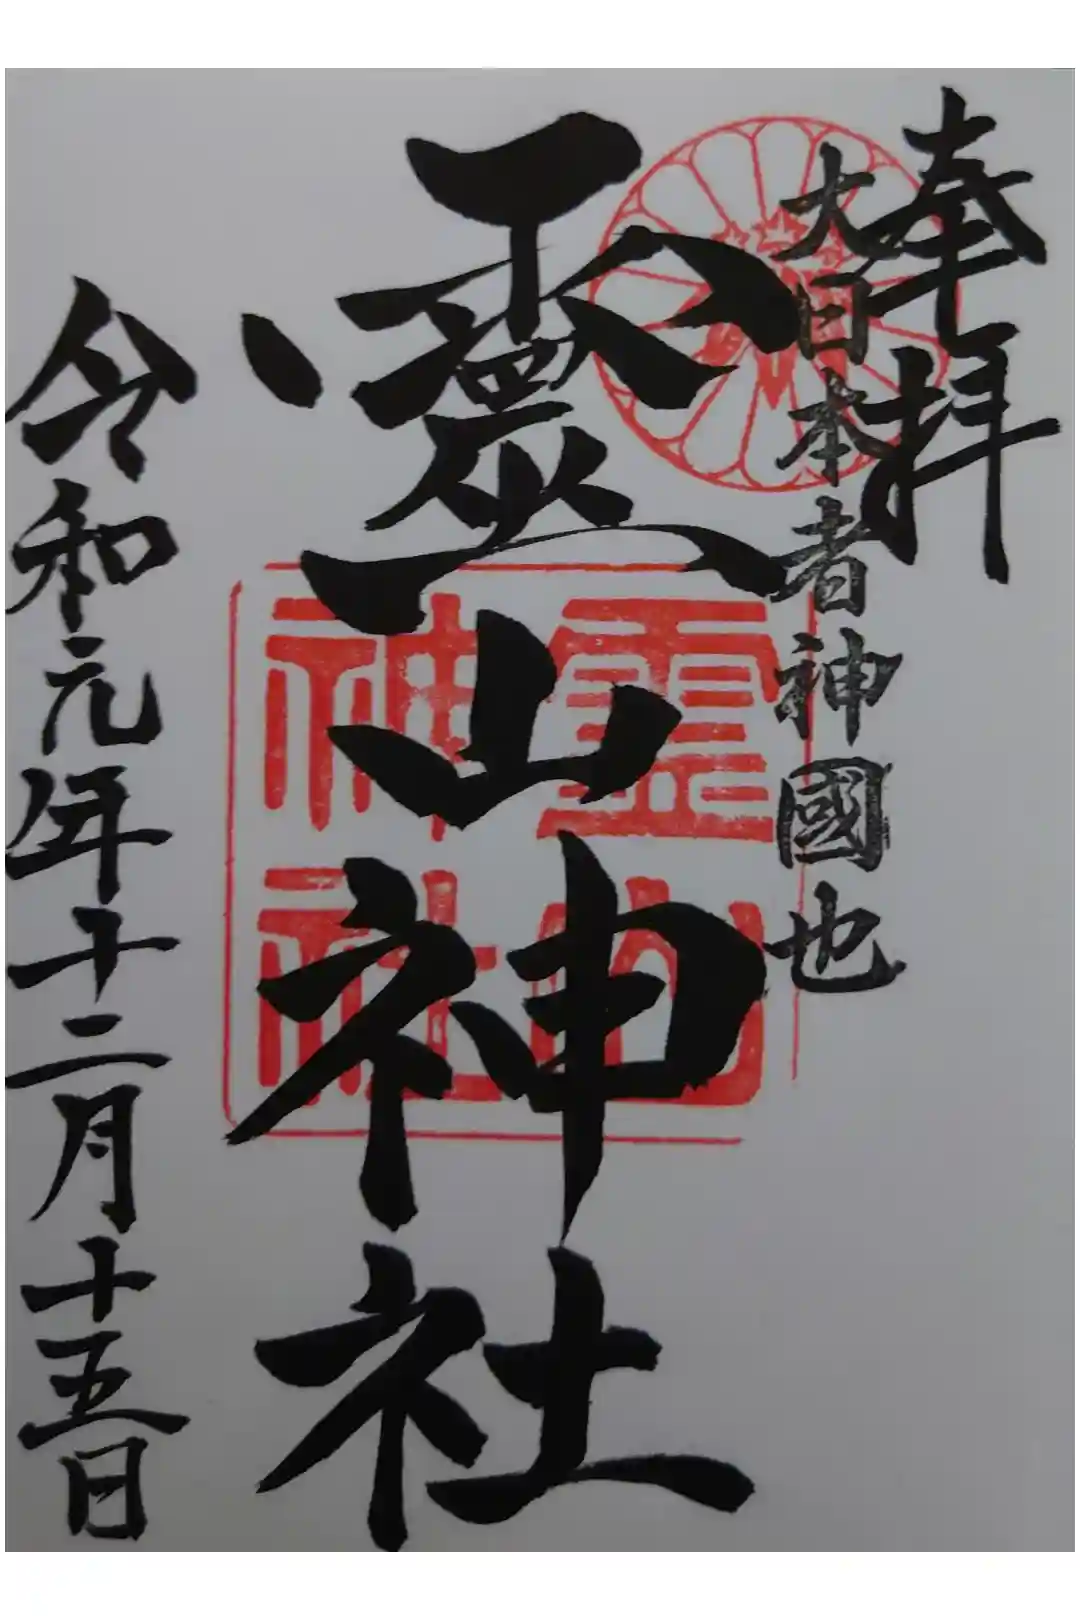 奉拝
大日本者神國也
靈山神社
靈山
神社
令和元年十二月十五日